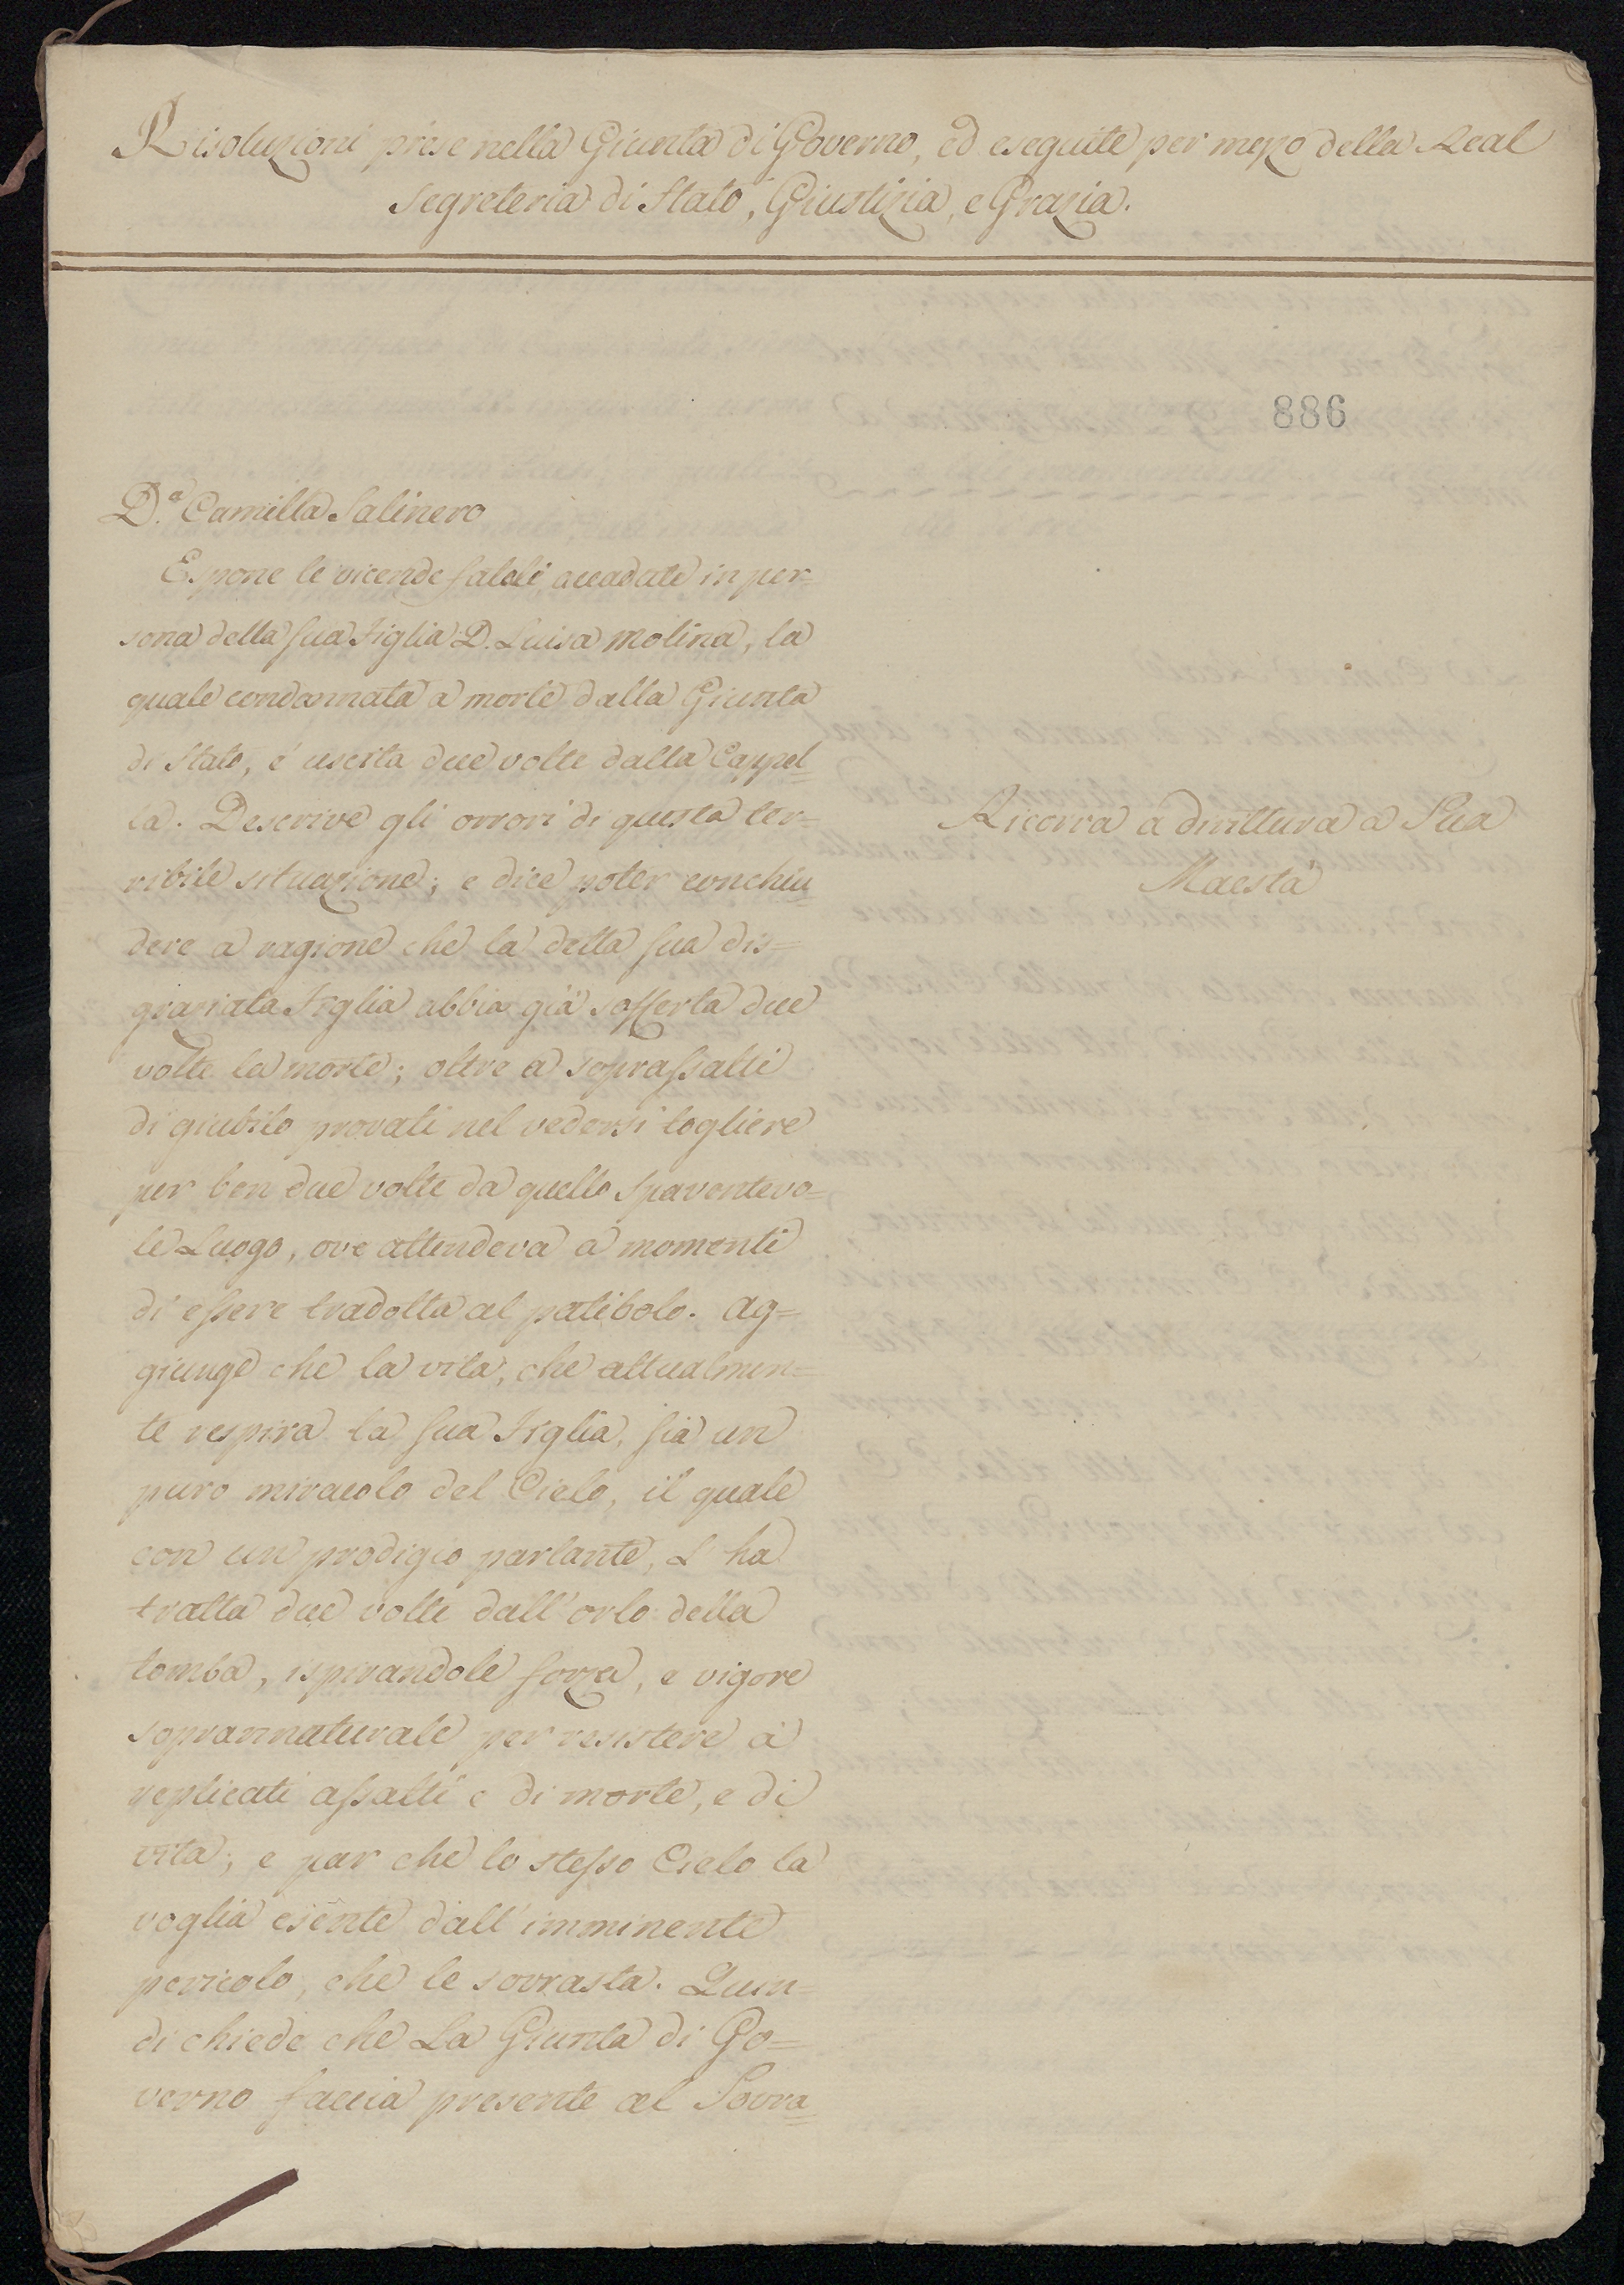 Risoluzioni prese nella Giunta di Governo, ed eseguite per mezo della Real
Segreteria di Stato, Giustizia, e Grazia.
886
D.ª Camilla Salinero
Espone le vicende fatali accadute in per=
sona della sua Figlia D. Luisa Molina, la
quale condannata a morte dalla Giunta
di Stato, è uscita due volte dalla Cappel=
la. Descrive gli orrori di questa ter=
ribile situazione; e dice poter conchiu=
dere a ragione che la detta sua dis=
graziata Figlia abbia già sofferta due
volte la morte; oltre a soprassalti
di giubilo provati nel vedersi togliere
per ben due volte da quello spaventevo=
le Luogo, ove attendeva a momenti
di essere tradotta al patibolo. Ag=
giunge che la vita, che attualmen=
te respira la sua Figlia, sia un
puro miracolo del Cielo, il quale
con un prodigio parlante, l'ha
tratta due volte dall'orlo della
tomba, ispirandole forza, e vigore
soprannaturale per resistere a
replicati assalti e di morte, e di
vita; e par che lo stesso Cielo la
voglia esente dall'imminente
pericolo, che le sovrasta. Quin=
di chiede che La Giunta di Go=
verno faccia presente al Sovra=
Ricorra a dirittura a Sua
Maestà